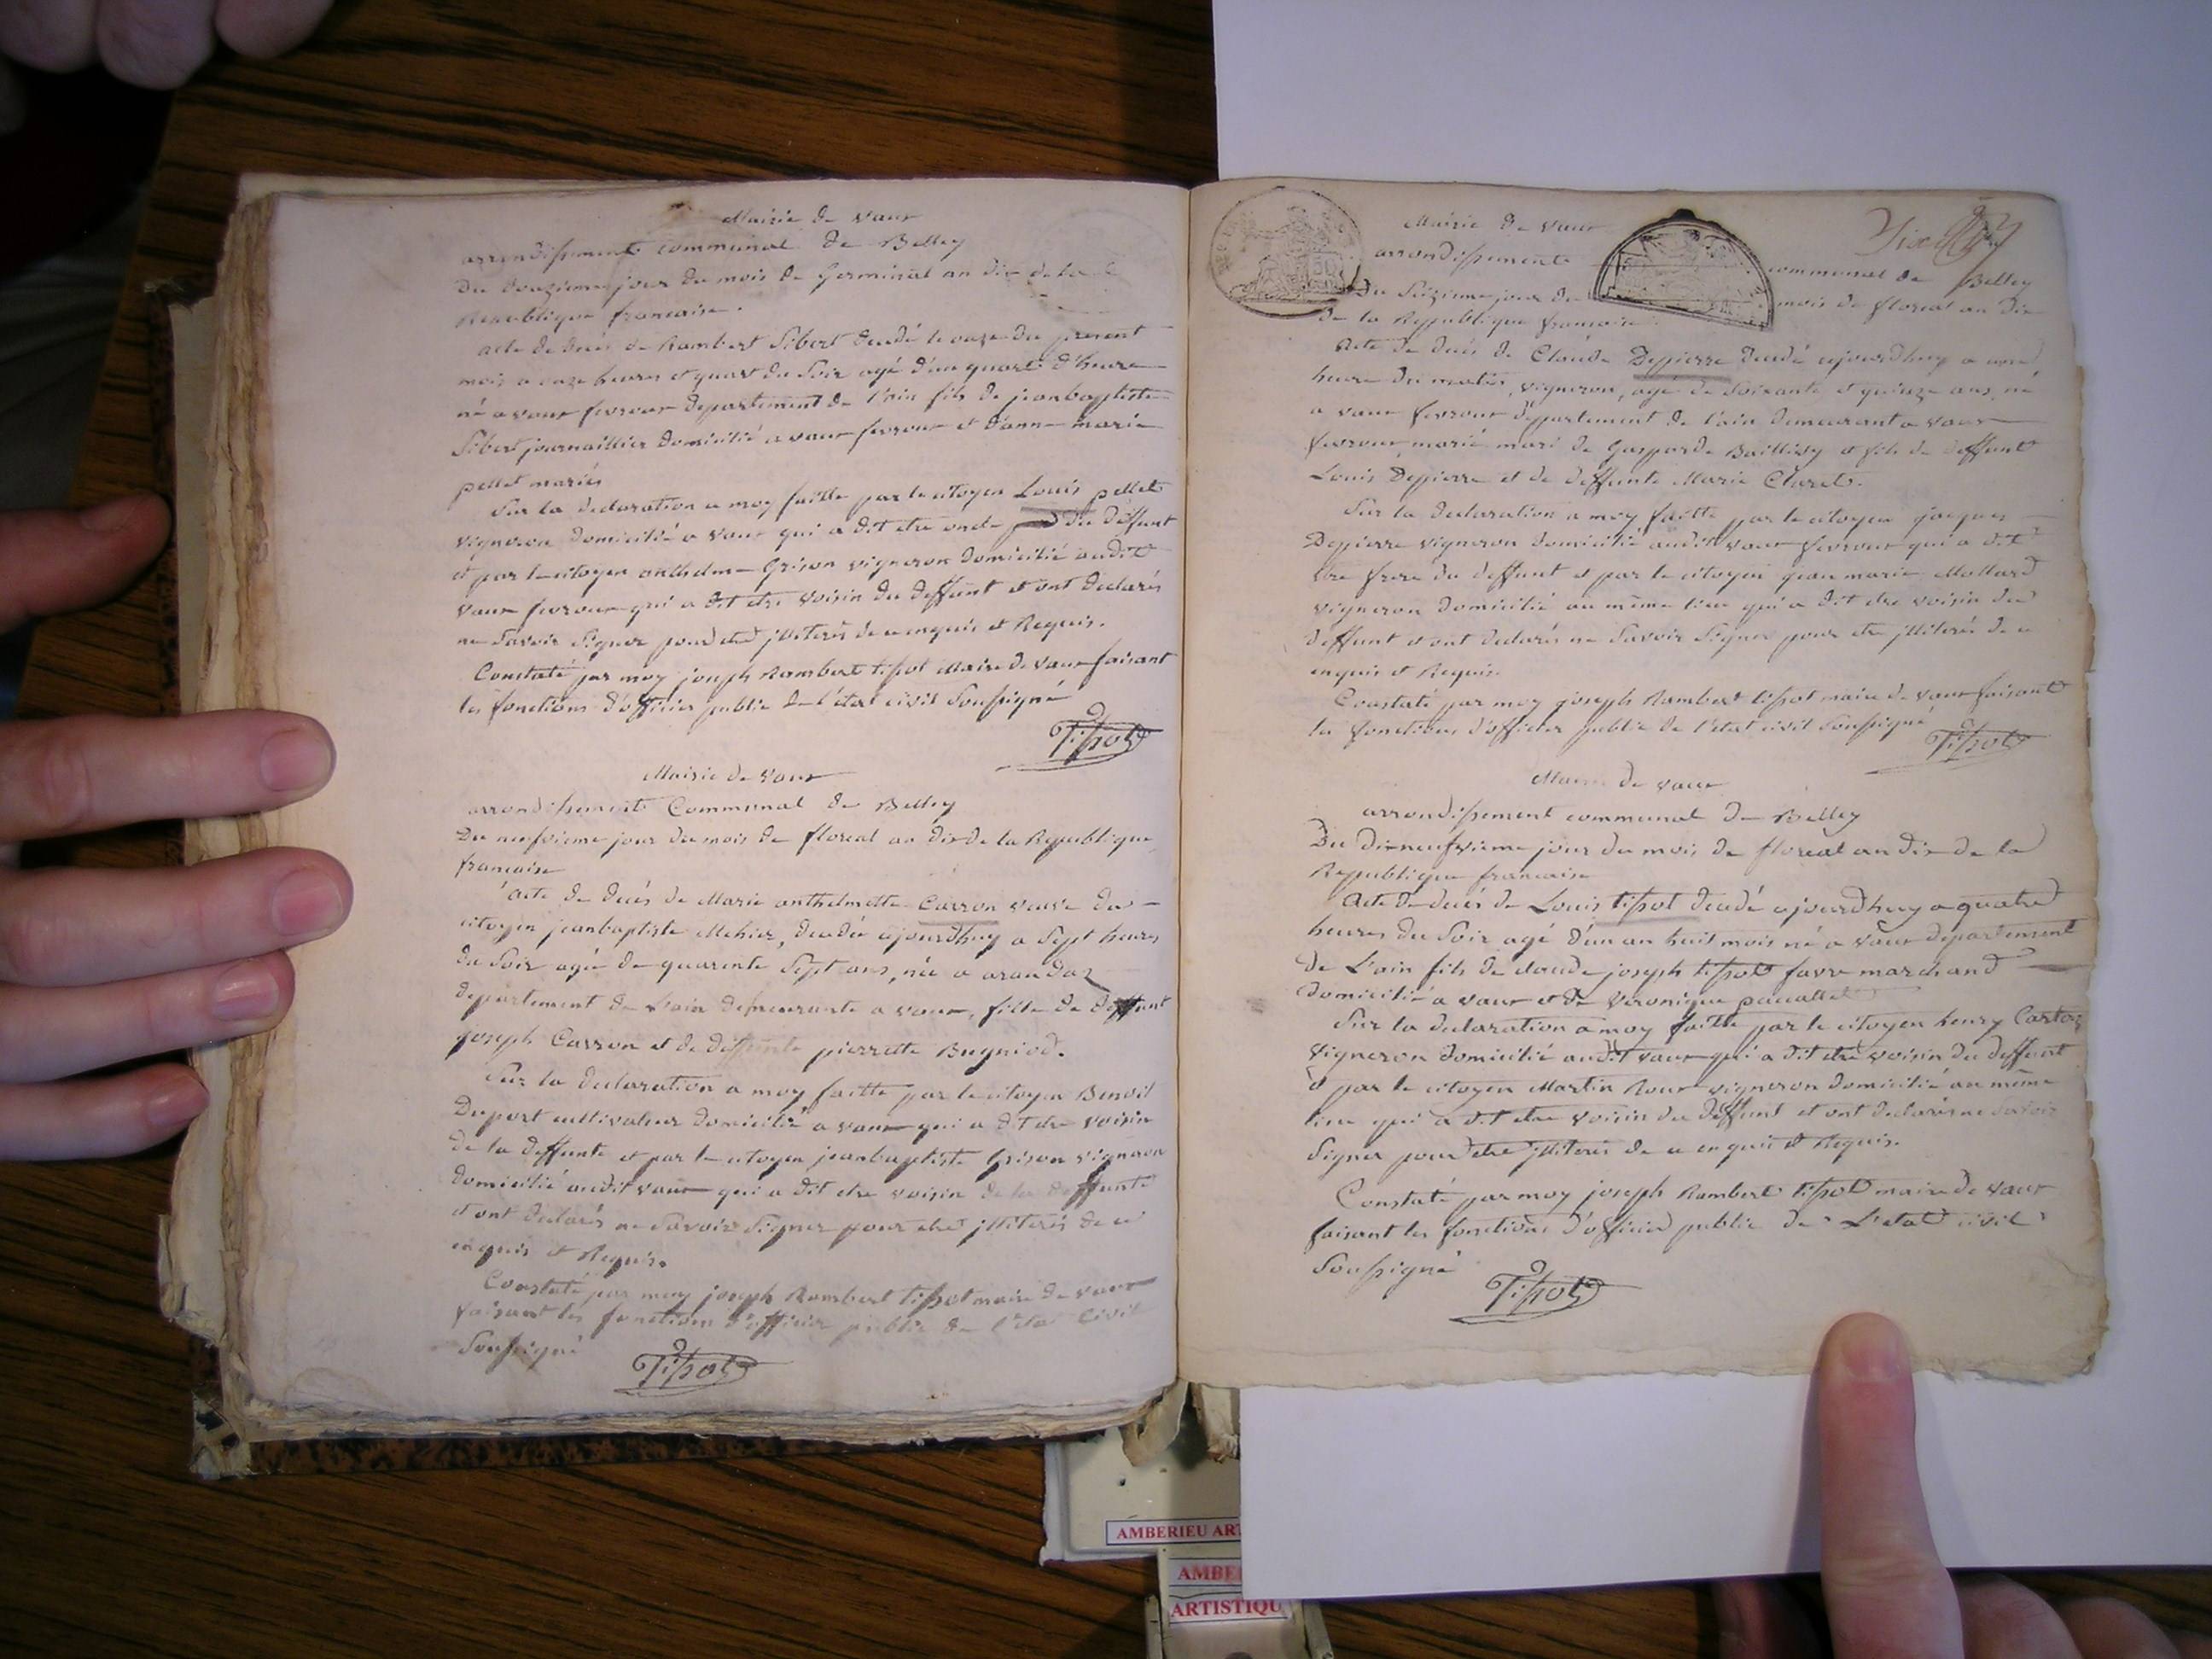 Mairie de vaux
arrondissement communal de Belley
Du douzieme jour du mois de Germinal an dix de la
Republique francaise.
acte de decés de Rambert Sibert decedé le onze du present
mois a onze heures et quart du soir agé d'un quart d'heure
né a vaux fevroux departement de l'ain fils de jeanbaptiste
Sibert journaillier domicilié a vaux fevroux et d'anne marie
pellet mariés
Sur la declaration a moy faitte par le citoyen Louis pellet
vigneron domicilié a vaux qui a dit etre oncle du deffunt
et par le citoyen anthelme Grison vigneron domicilié audit
vaux fevroux qui a dit etre voisin du deffunt et ont declarés
ne Savoir Signer pour etre jlliterés de ce enquis et Requis.
Constaté par moy joseph Rambert tissot Maire de vaux faisant
les fonctions d'officier public de l'état civil Soussigné
Tissot
Mairie de vaux
arrondissement Communal de Belley
Du neufvieme jour du mois de floreal an dix de la Republique
francaise
acte de decés de Marie anthelmette Carron veuve du
citoyen jeanbaptiste Mehier, decedée ajourdhuy a Sept heures
du Soir agée de quarente Sept ans, née a arandaz
departement de l'ain demeurante a vaux, fille de deffunt
joseph Carron et de deffunte pierrette Bugniod.
Sur la declaration a moy faitte par le citoyen Benoit
Duport cultivateur domicilié a vaux qui a dit etre voisin
de la deffunte et par le citoyen jeanbaptiste Grison vigneron
domicilié audit vaux qui a dit etre voisin de la deffunte
et ont declarés ne Savoir Signer pour etre jlliterés de ce
enquis et Requis.
Constaté par moy joseph Rambert tissot maire de vaux
faisant les fonctions d'officier public de l'etat Civil
Soussigné
Tissot
Mairie de vaux
arrondissement communal de Belley
Du Seizieme jour du mois de floreal an Dix
de la Republique francaise
Acte de decés de Claude Depierre decedé ajourdhuy a une
heure du matin, vigneron, agé de Soixante et quinze ans, né
a vaux fevroux département de l'ain demeurant a vaux
fevroux, marié mari de Gasparde Baillivy et fils de deffunt
Louis Depierre et de deffunte Marie Claret.
Sur la declaration a moy faitte par le citoyen jacques
Depierre vigneron domicilié audit vaux fevroux qui a dit
etre frere du deffunt et par le citoyen jean marie Mollard
vigneron domicilié au même lieu qui a dit etre voisin du
deffunt et ont declarés ne Savoir Signer pour etre jlliterés de ce
enquis et Requis.
Constaté par moy joseph Rambert tissot maire de vaux faisant
les fonctions d'officier public de l'etat civil Soussigné
Tissot
Mairie de vaux
arrondissement communal de Belley
Du dixneufvieme jour du mois de floreal an dix de la
Republique francaise
Acte de decés de Louis tissot decedé ajourdhuy a quatre
heures du Soir agé d'un an huit mois né a vaux departement
de L'ain fils de claude joseph tissot favre marchand
domicilié a vaux et de Veronique pacallet
Sur la declaration a moy faitte par le citoyen henry Carton
vigneron domicilié audit vaux qui a dit etre voisin du deffunt
et par le citoyen Martin Roux vigneron domicilié au même
lieu qui a dit etre voisin du deffunt et ont declarés ne Savoir
Signer pour etre jlliterés de ce enquis et Requis.
Constaté par moy joseph Rambert tissot maire de vaux
faisant les fonctions d'officier public de L'etat civil
Soussigné
Tissot
AMBERIEU ART
AMBE
ARTISTIQU